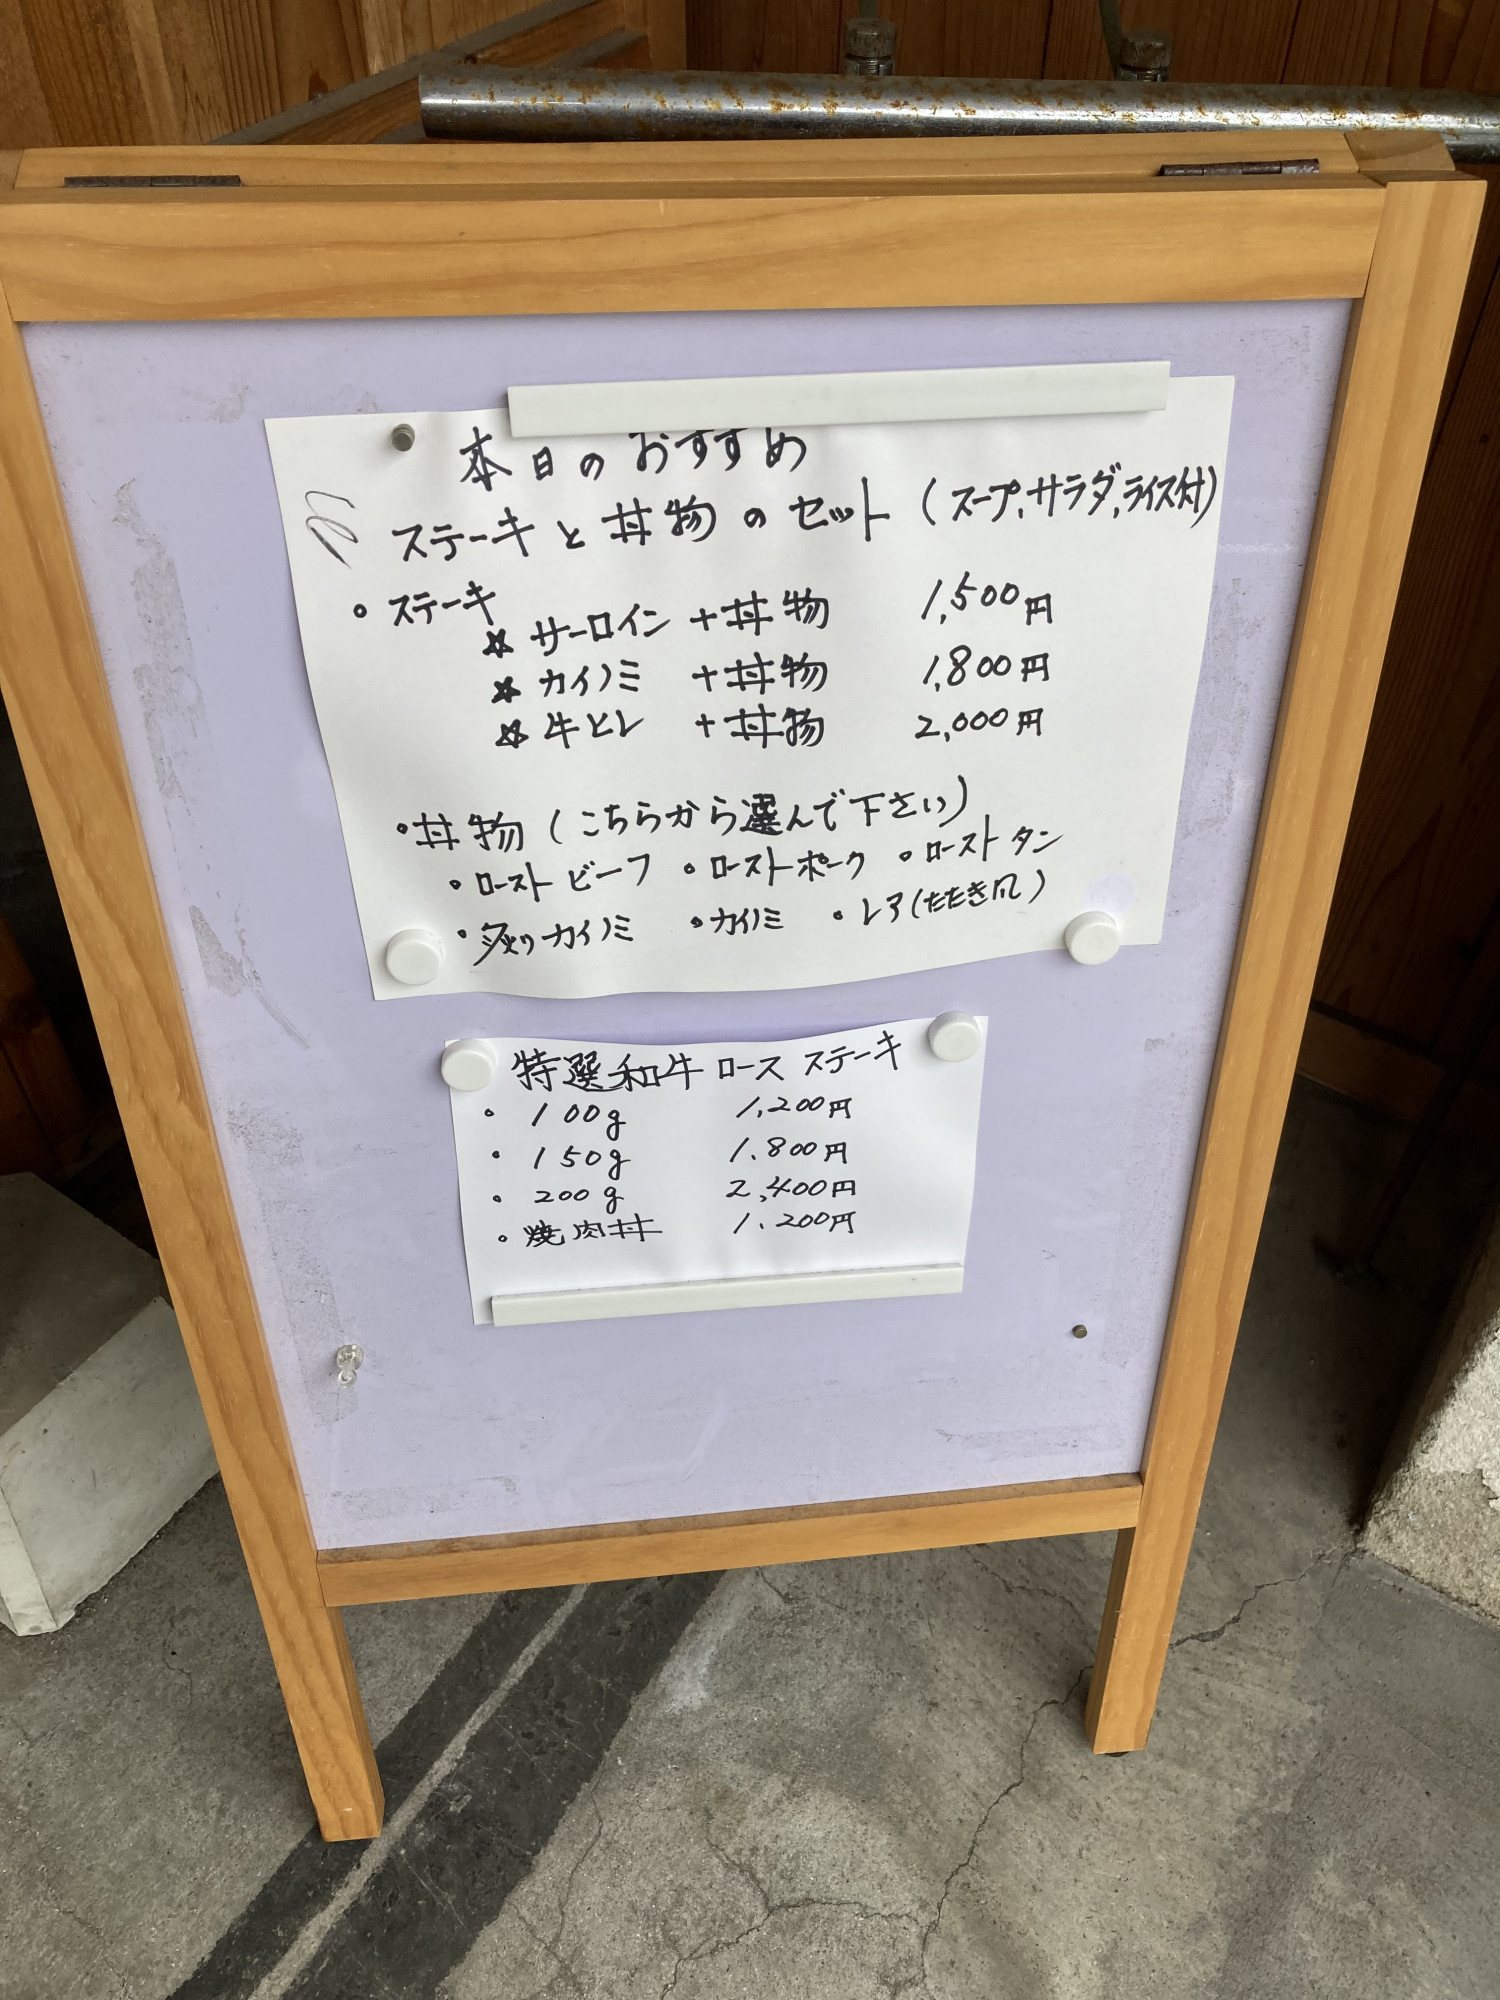 本日のおすすめ
ステーキと丼物のセット（スープ、サラダ、ライス付）
・ステーキ
☆ サーロイン +丼物 1,500円
☆ カイノミ +丼物 1,800円
☆ 牛ヒレ +丼物 2,000円
・丼物（こちらから選んで下さい）
・ローストビーフ ・ローストポーク ・ローストタン
・炙りカイノミ ・カイノミ ・レア（たたき風）
特選和牛ロースステーキ
・100g 1,200円
・150g 1.800円
・200g 2,400円
・焼肉丼 1.200円